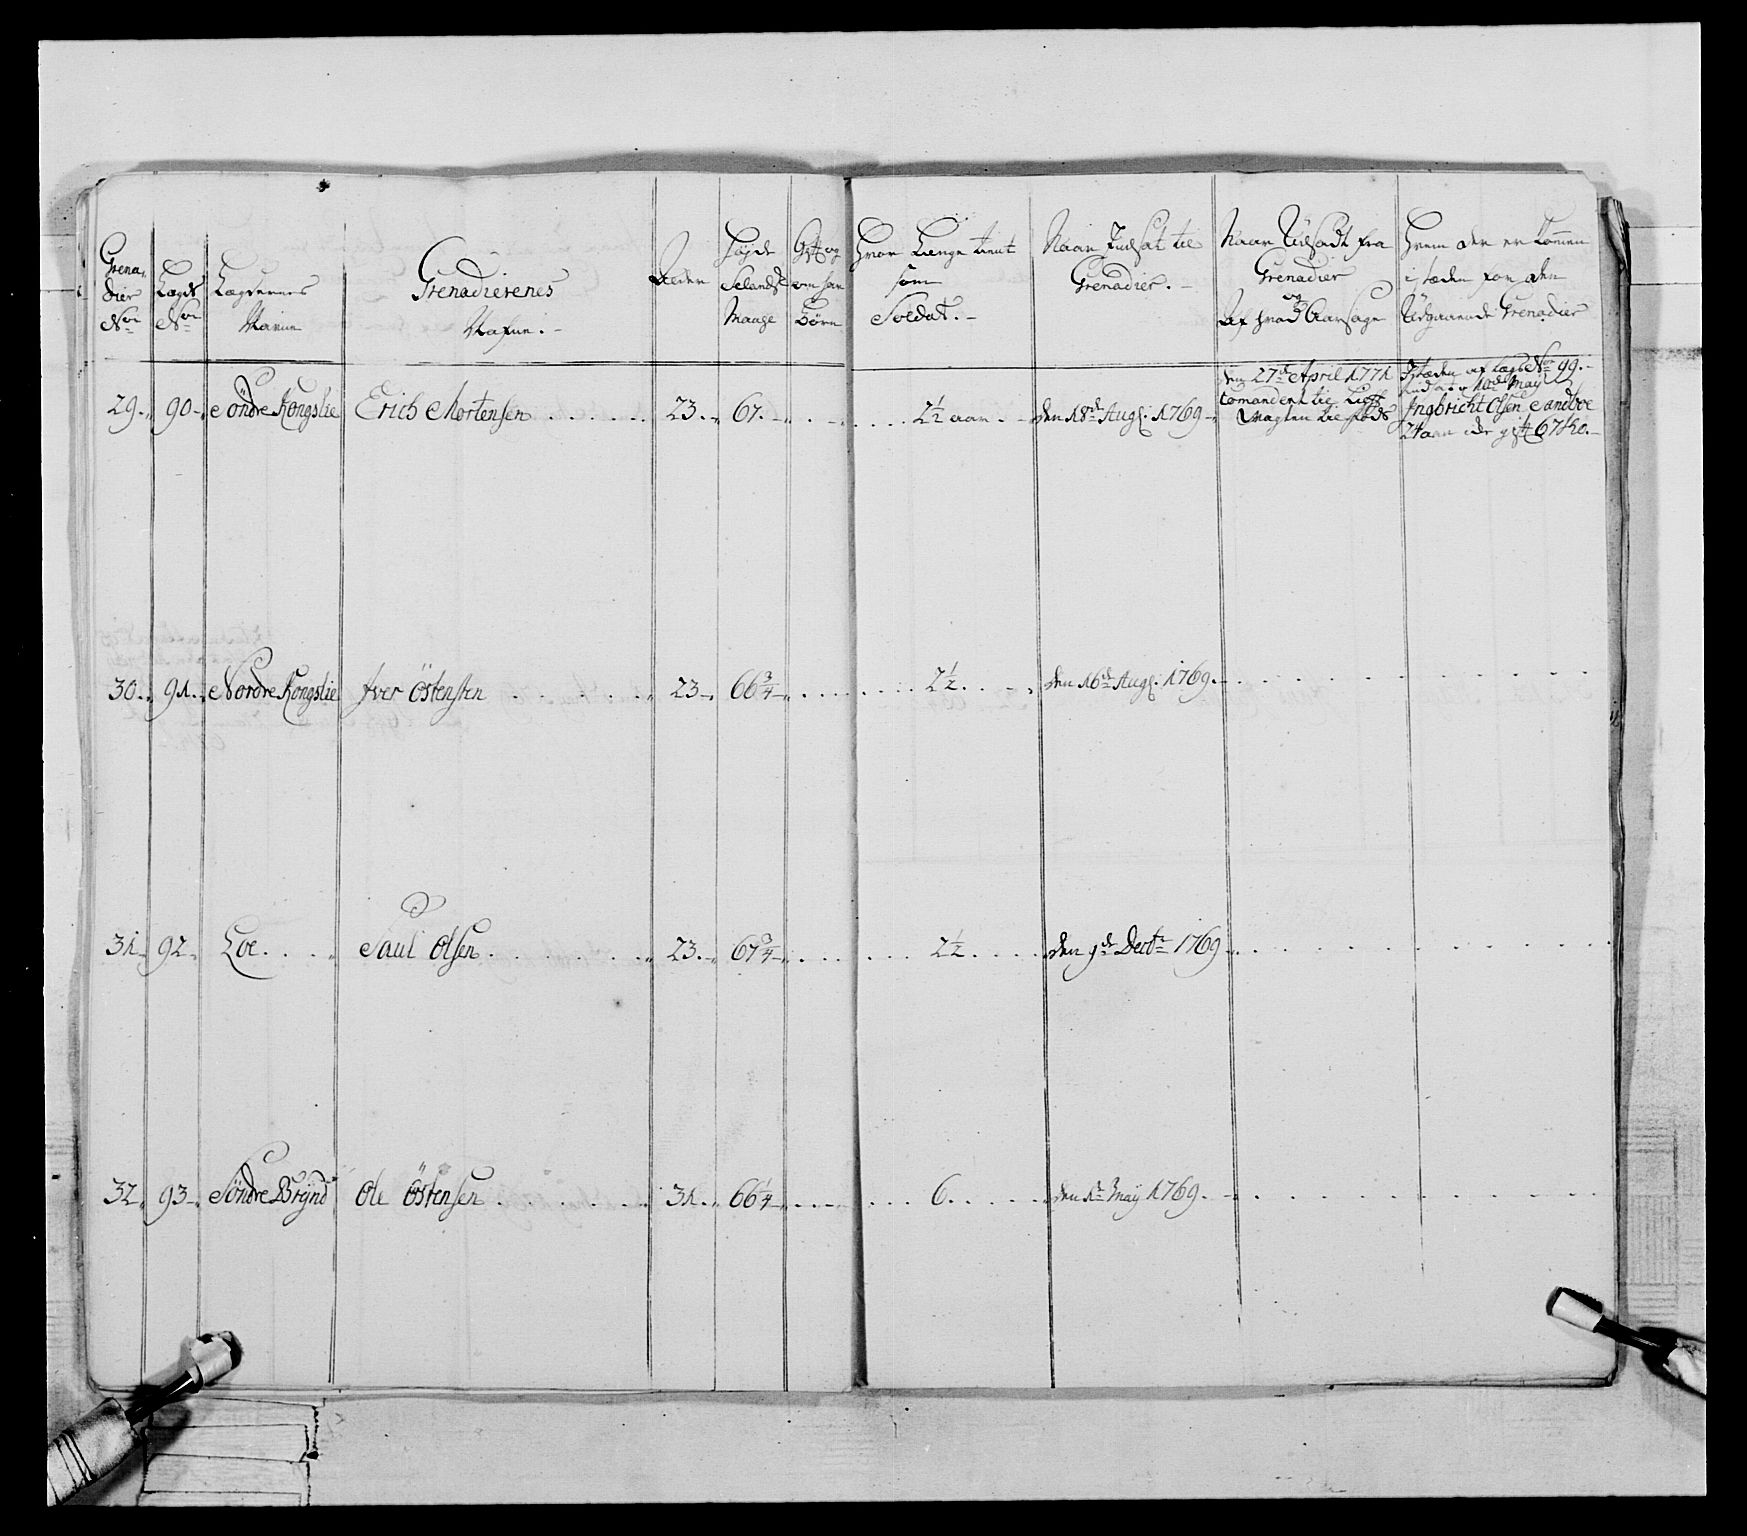 Grena-
dier
No
Lægds
No
Lægdernes
Navne
Grenadierenes
Nafne.
Alder
Højde
Selands
Maage
Gift og
om har
Börn
Hvor Længe tient
som
Soldat.
Naar Indsat til
Grenadier.
Naar Udsadt fra
Grenadier
og
Af hvad Aarsage
Hvem der er kommen
i stæden for den
Udgaaende Grenadier
29. 90. Söndre Kongslie Erich Mortensen 23. 67. 2½ aar. den 18de Augs: 1769
den 27de April 1771
Comandert til Liff
Vagten til fods
I stæden af Lægd No 99.
Indsat 10de May
Ingbricht Olsen Sandboe
24 aar icke gift 67
30. 91. Nordre Kongslie Iver Östensen 23 66¾ 2½ den 16de Augs. 1769.
31. 92. Loe Paul Olsen 23. 67¾ 2½ den 9de Decbr 1769
32. 93 Söndre Brÿnd Ole Östensen 31. 66¼ 6. den 1te Maÿ 1769.